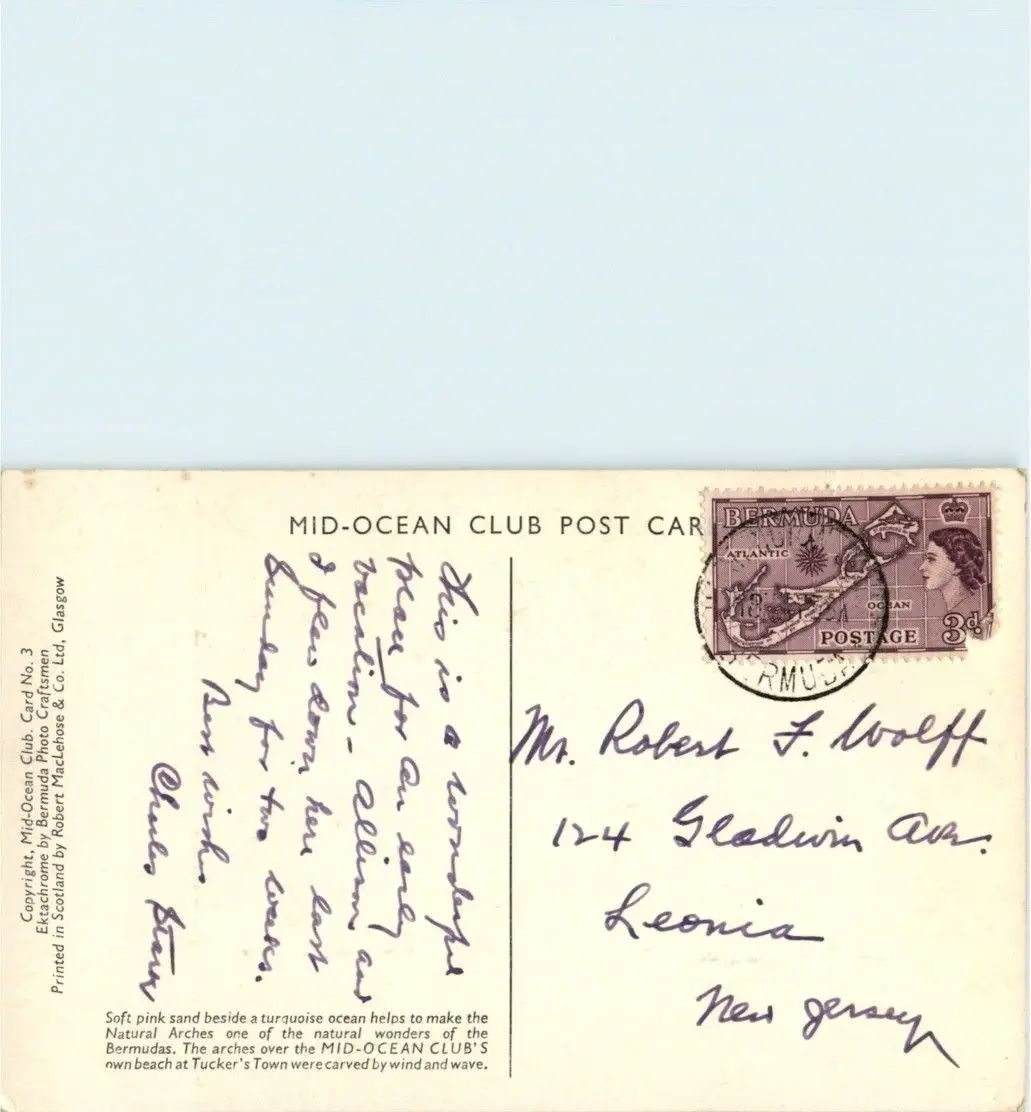 MID-OCEAN CLUB POST CAR
BERMUDA
ATLANTIC
OCEAN
POSTAGE
3d.
BERMUDA
This is a wonderful
place for an early
vacation - Allison and
I flew down here last
Sunday for two weeks.
Best wishes
Charles
Mr. Robert F. Wolff
124 Gladwin Ave.
Leonia
New Jersey
Soft pink sand beside a turquoise ocean helps to make the
Natural Arches one of the natural wonders of the
Bermudas. The arches over the MID-OCEAN CLUB'S
own beach at Tucker's Town were carved by wind and wave.
Copyright, Mid-Ocean Club. Card No. 3
Ektachrome by Bermuda Photo Craftsmen
Printed in Scotland by Robert MacLehose & Co. Ltd, Glasgow